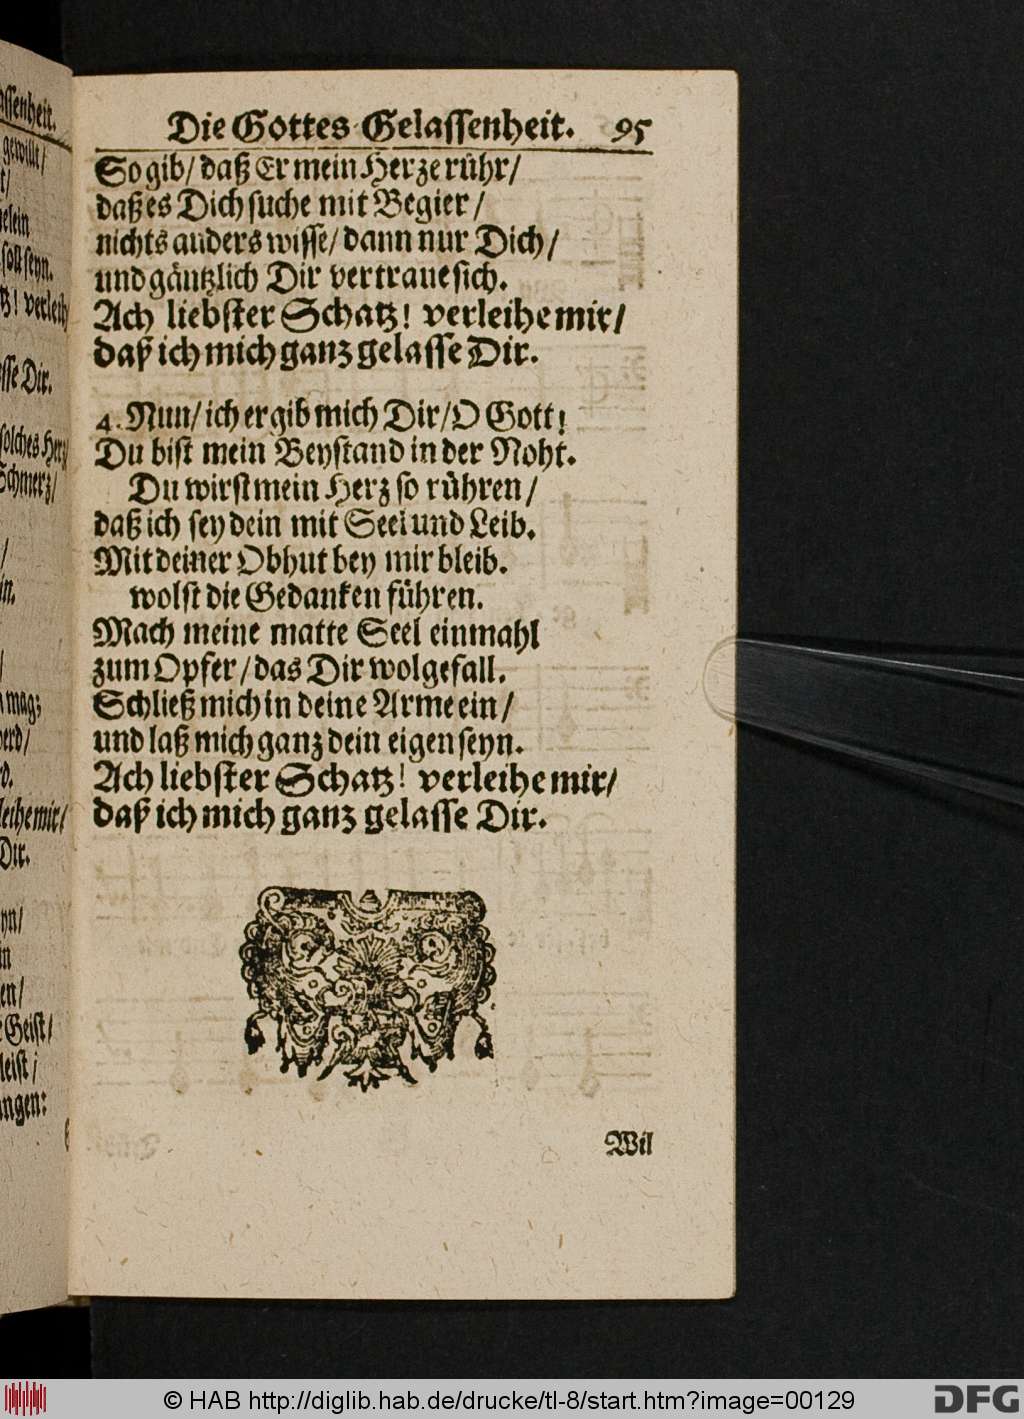 Die Gottes Gelassenheit. 95
So gib/ daß Er mein Herze rühr/
daß es Dich suche mit Begier/
nichts anders wisse/ dann nur Dich/
und gäntzlich Dir vertraue sich.
Ach liebster Schatz! verleihe mir/
daß ich mich ganz gelasse Dir.
4. Nun/ ich ergib mich Dir/ O Gott!
Du bist mein Beystand in der Noht.
Du wirst mein Herz so rühren/
daß ich sey dein mit Seel und Leib.
Mit deiner Obhut bey mir bleib.
wolst die Gedanken führen.
Mach meine matte Seel einmahl
zum Opfer/ das Dir wolgefall.
Schließ mich in deine Arme ein/
und laß mich ganz dein eigen seyn.
Ach liebster Schatz! verleihe mir/
daß ich mich ganz gelasse Dir.
Wil
assenheit.
gewillt/
t/
elein
soll seyn.
tz! verleih
sse Dir.
solches Herz
Schmerz/
/
in.
/
mag;
erd/
rd.
leihe mir/
Dir.
eyn/
in
en/
Geist/
leist/
ungen:
© HAB http://diglib.hab.de/drucke/tl-8/start.htm?image=00129
DFG